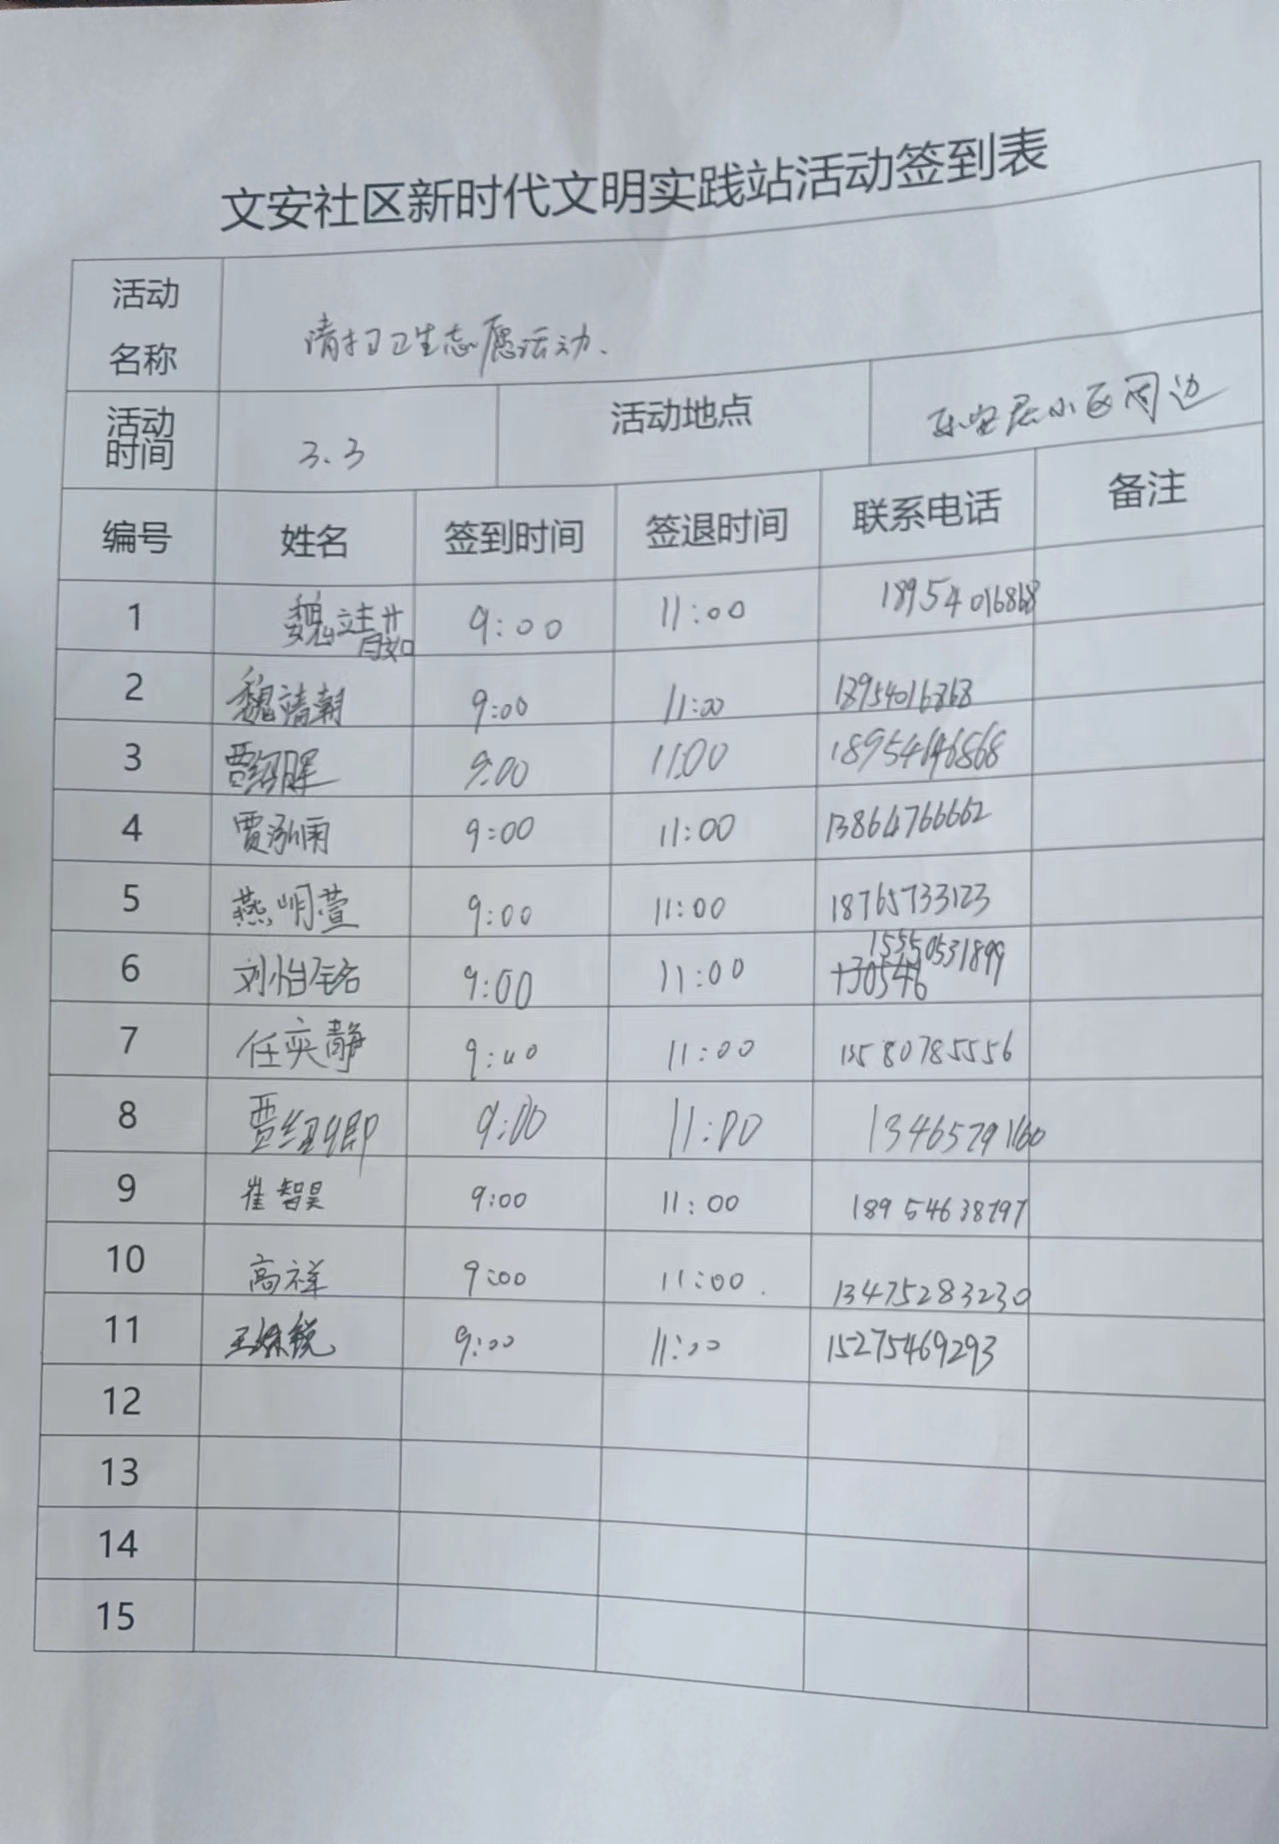 文安社区新时代文明实践站活动签到表
活动名称 清扫卫生志愿活动.
活动时间 3.3 活动地点 小区周边
编号 姓名 签到时间 签退时间 联系电话 备注
1 魏 9:00 11:00 18954016868
2 魏靖朝 9:00 11:00 18954016868
3 贾绍晖 9:00 11:00
4 贾泓 9:00 11:00 13864766662
5 燕明萱 9:00 11:00 18765733123
6 刘怡 9:00 11:00 15550531899
7 任奕静 11:00 13580785556
8 贾 9:00 11:00 13465791160
9 崔智昊 9:00 11:00 18954638797
10 高祥 9:00 11:00 13475283230
11 王 9:00 11:00 15275469293
12
13
14
15